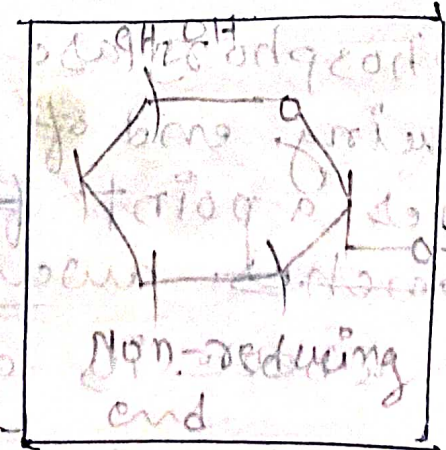 CH₂OH
O
O
Non-reducing
end